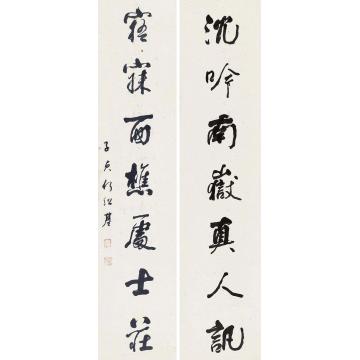 沈吟南嶽真人訊
寤寐西樵處士莊
子貞何紹基